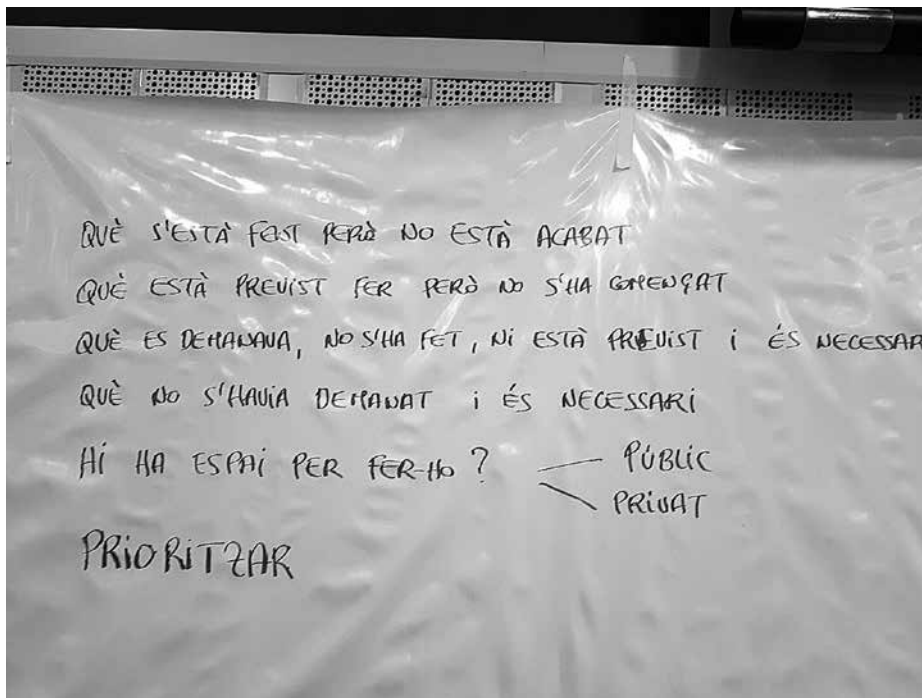 QUÈ S'ESTÀ FENT PERÒ NO ESTÀ ACABAT
QUÈ ESTÀ PREVIST FER PERÒ NO S'HA COMENÇAT
QUÈ ES DEMANAVA, NO S'HA FET, NI ESTÀ PREVIST I ÉS NECESSAR
QUÈ NO S'HAVIA DEMANAT I ÉS NECESSARI
HI HA ESPAI PER FER-HO? PÚBLIC
PRIVAT
PRIORITZAR